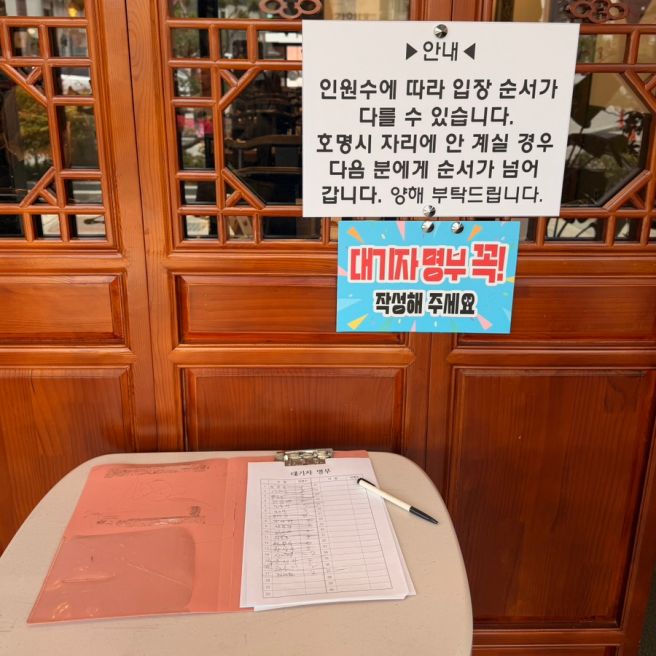 ▶안내◀
인원수에 따라 입장 순서가
다를 수 있습니다.
호명시 자리에 안 계실 경우
다음 분에게 순서가 넘어
갑니다. 양해 부탁드립니다.
대기자 명부 꼭!
작성해 주세요
대기자 명부